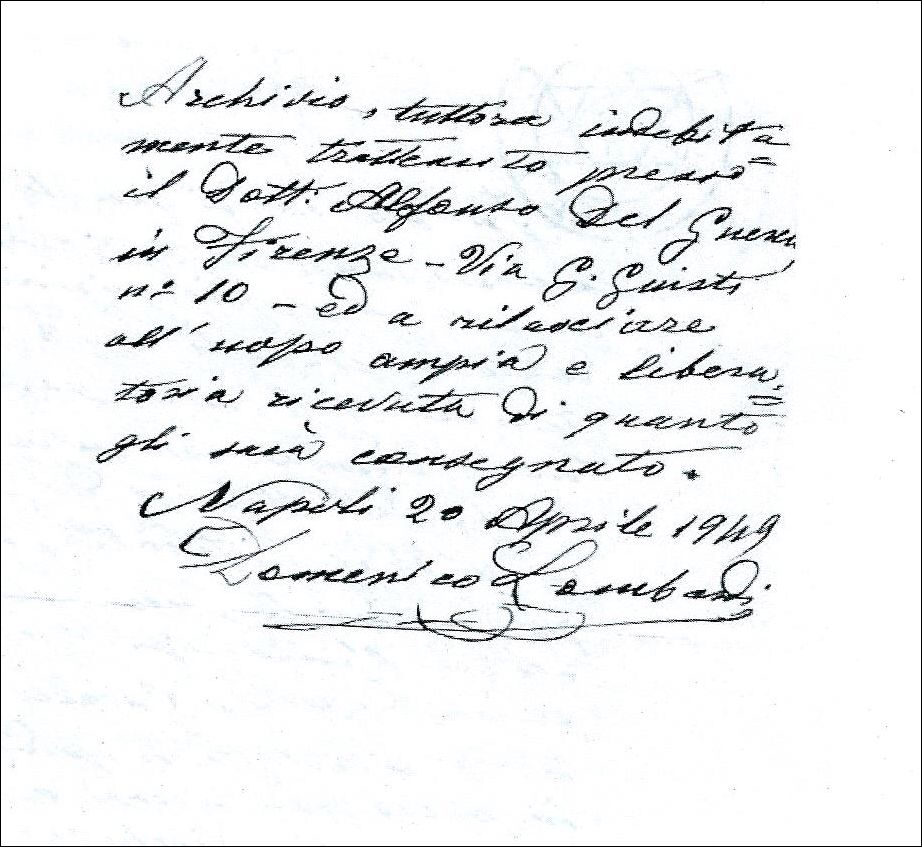 Archivio, tuttora indebita=
mente trattenuto presso
il Dott. Alfonso Del Guerra
in Firenze - Via G. Giusti
n.° 10 - ed a rilasciare
all'uopo ampia e libera=
toria ricevuta di quanto
gli sarà consegnato.
Napoli 20 Aprile 1949
Domenico Lombardi